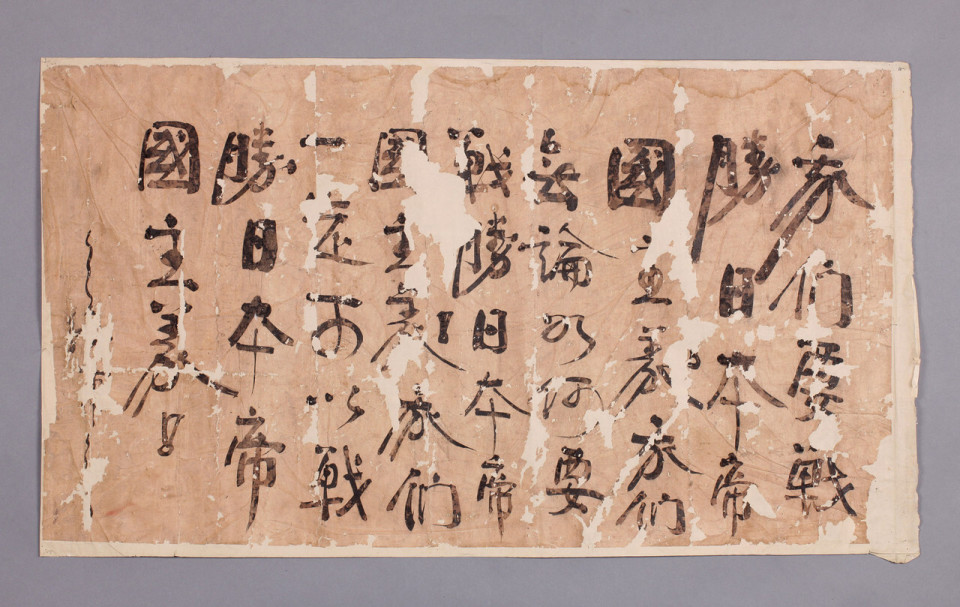 我们要戰
勝日本帝
國主義我们
無論如何要
戰勝日本帝
國主義！我们
一定可以戰
勝日本帝
國主義！